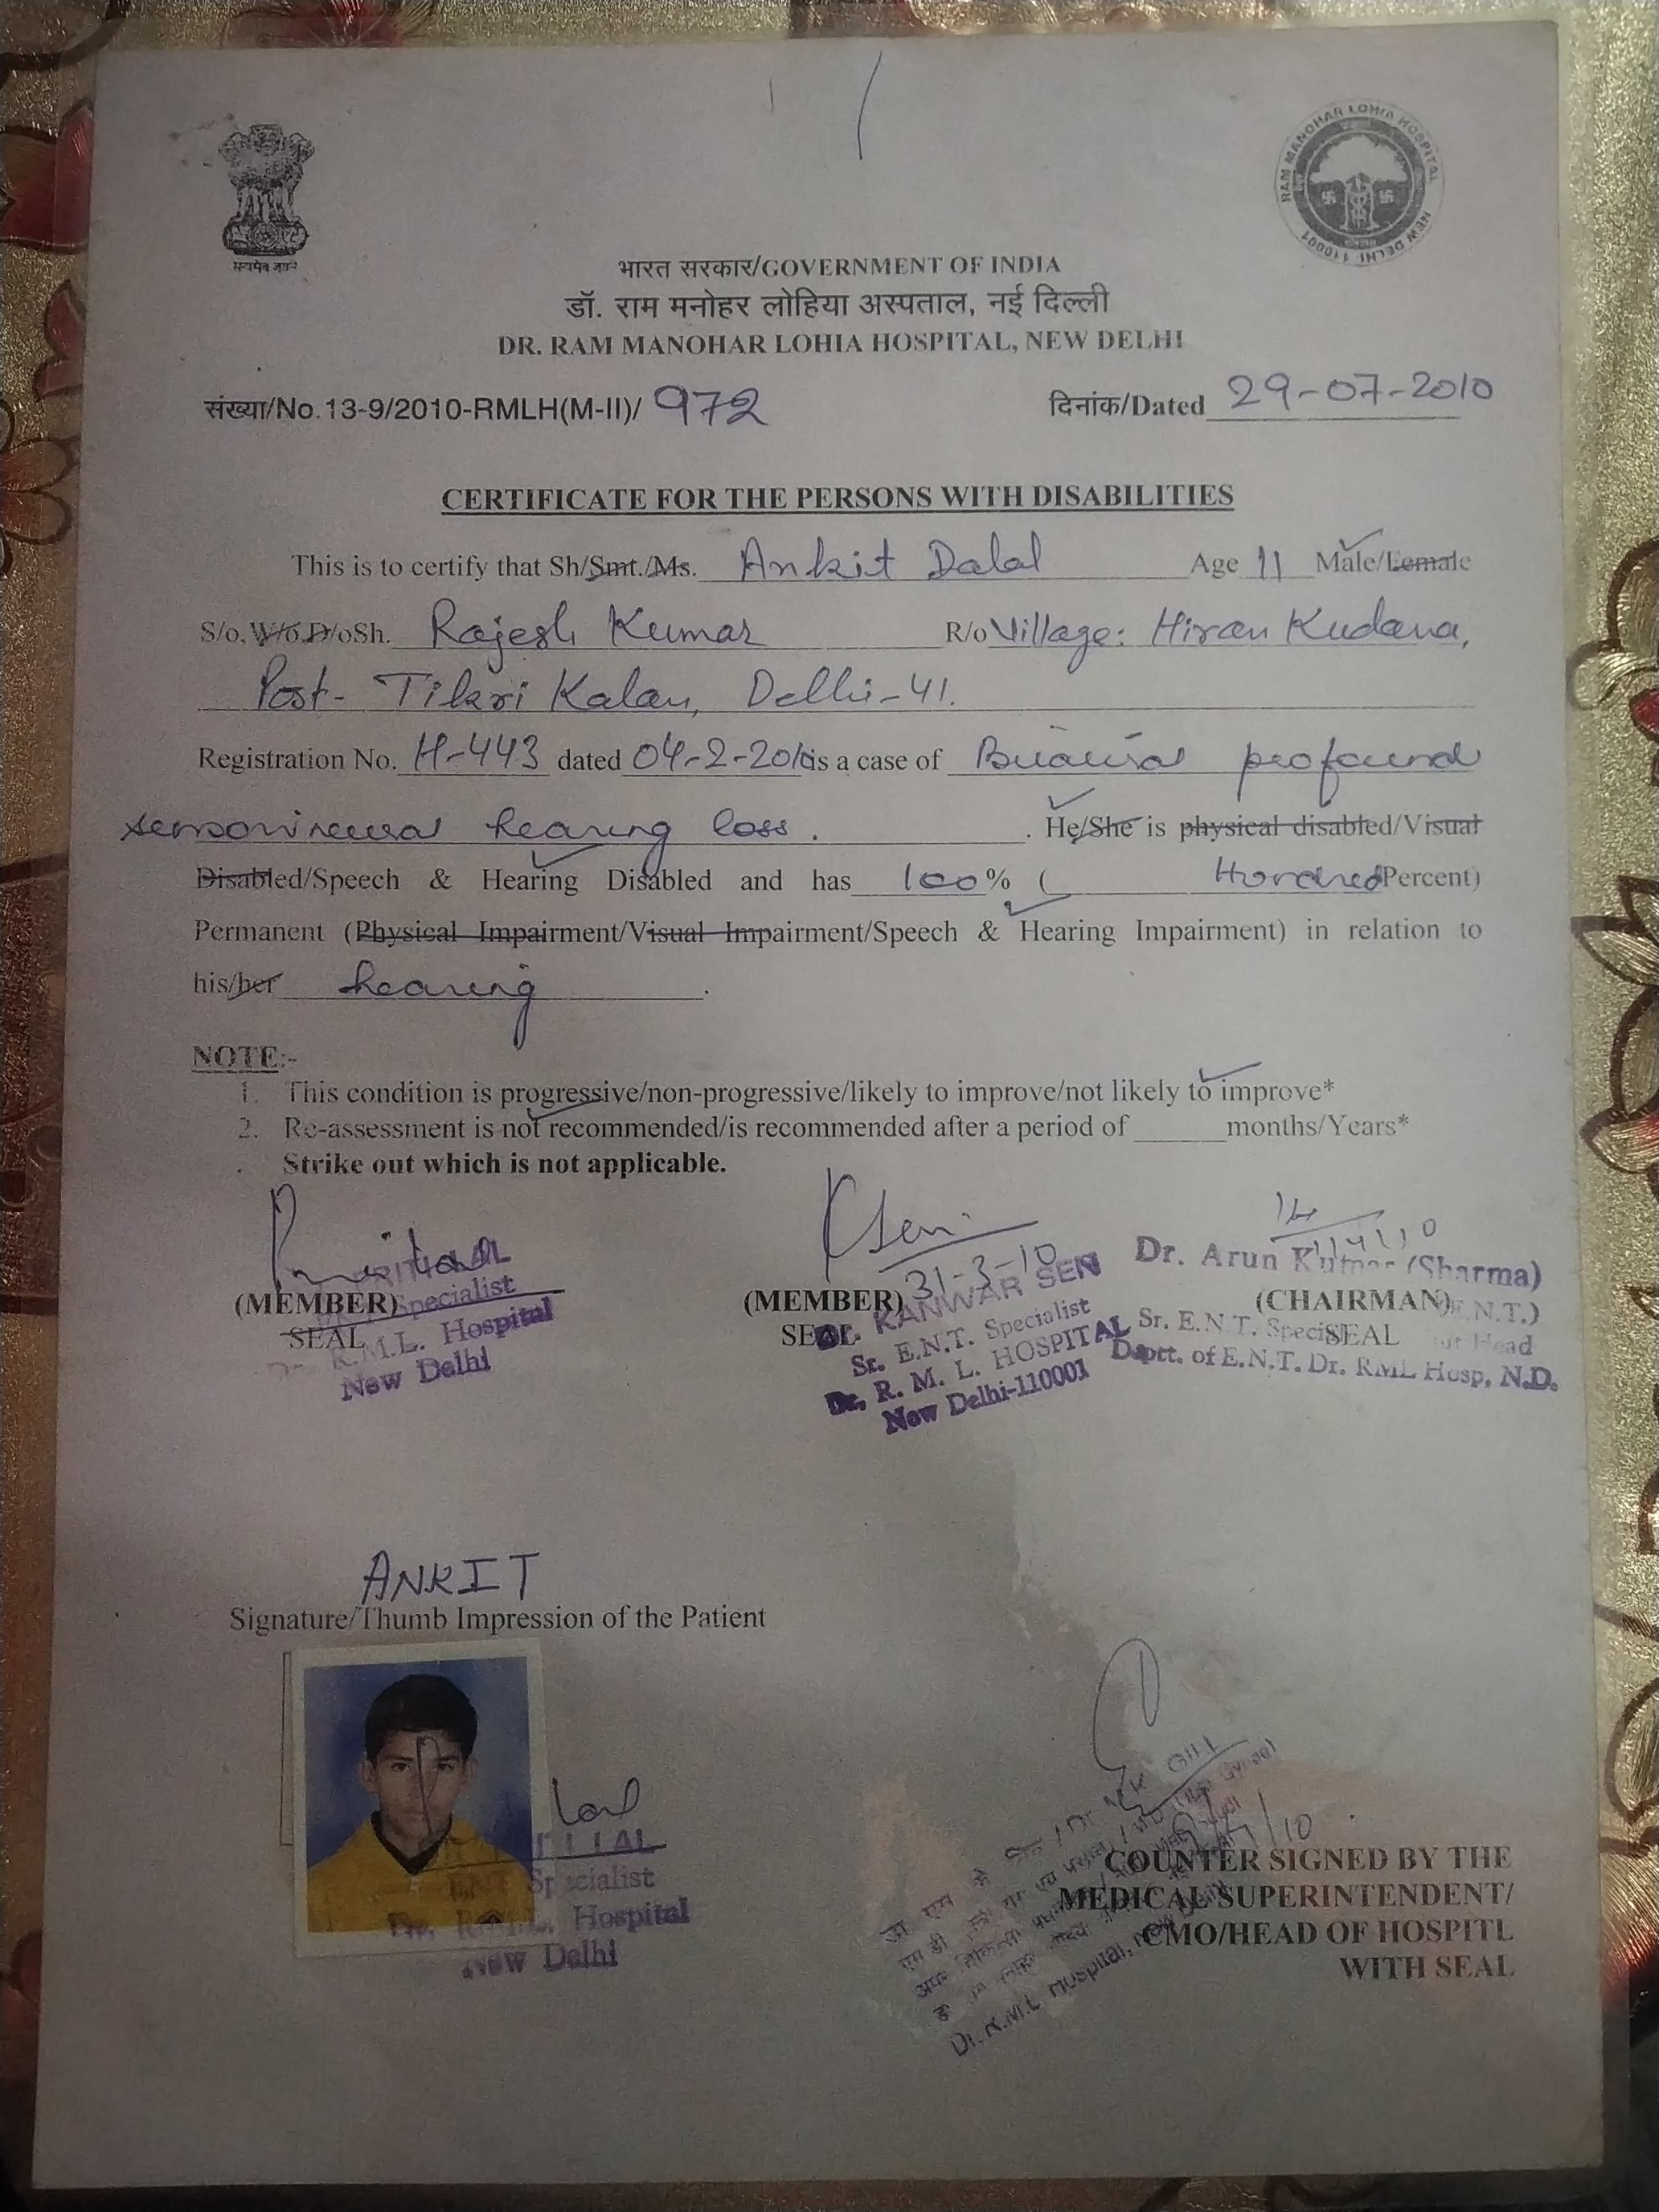 सत्यमेव जयते
RAM MANOHAR LOHIA HOSPITAL
NEW DELHI 110001
भारत सरकार/GOVERNMENT OF INDIA
डॉ. राम मनोहर लोहिया अस्पताल, नई दिल्ली
DR. RAM MANOHAR LOHIA HOSPITAL, NEW DELHI
संख्या/No.13-9/2010-RMLH(M-II)/ 972
दिनांक/Dated 29-07-2010
CERTIFICATE FOR THE PERSONS WITH DISABILITIES
This is to certify that Sh/Smt./Ms. Ankit Dalal Age 11 Male/Female
S/o,W/o,D/oSh. Rajesh Kumar R/o Village: Hiran Kudana,
Post- Tikri Kalan, Delhi-41.
Registration No. H-443 dated 04-2-2010 is a case of Binaural profound
sensorineural hearing loss. He/She is physical disabled/Visual
Disabled/Speech & Hearing Disabled and has 100% ( Hundred Percent)
Permanent (Physical Impairment/Visual Impairment/Speech & Hearing Impairment) in relation to
his/her hearing.
NOTE:-
1. This condition is progressive/non-progressive/likely to improve/not likely to improve*
2. Re-assessment is not recommended/is recommended after a period of ______months/Years*
. Strike out which is not applicable.
(MEMBER)
SEAL
Specialist
R.M.L. Hospital
New Delhi
31-3-10
(MEMBER)
SEAL
Dr. KANWAR SEN
Sr. E.N.T. Specialist
Dr. R. M. L. HOSPITAL
New Delhi-110001
Dr. Arun Kumar (Sharma)
(CHAIRMAN)
SEAL
Sr. E.N.T. Specialist Head
Deptt. of E.N.T. Dr. RML Hosp, N.D.
ANKIT
Signature/Thumb Impression of the Patient
Specialist
Hospital
New Delhi
GILL
Dr. R.M.L Hospital, New Delhi
COUNTER SIGNED BY THE
MEDICAL SUPERINTENDENT/
CMO/HEAD OF HOSPITL
WITH SEAL